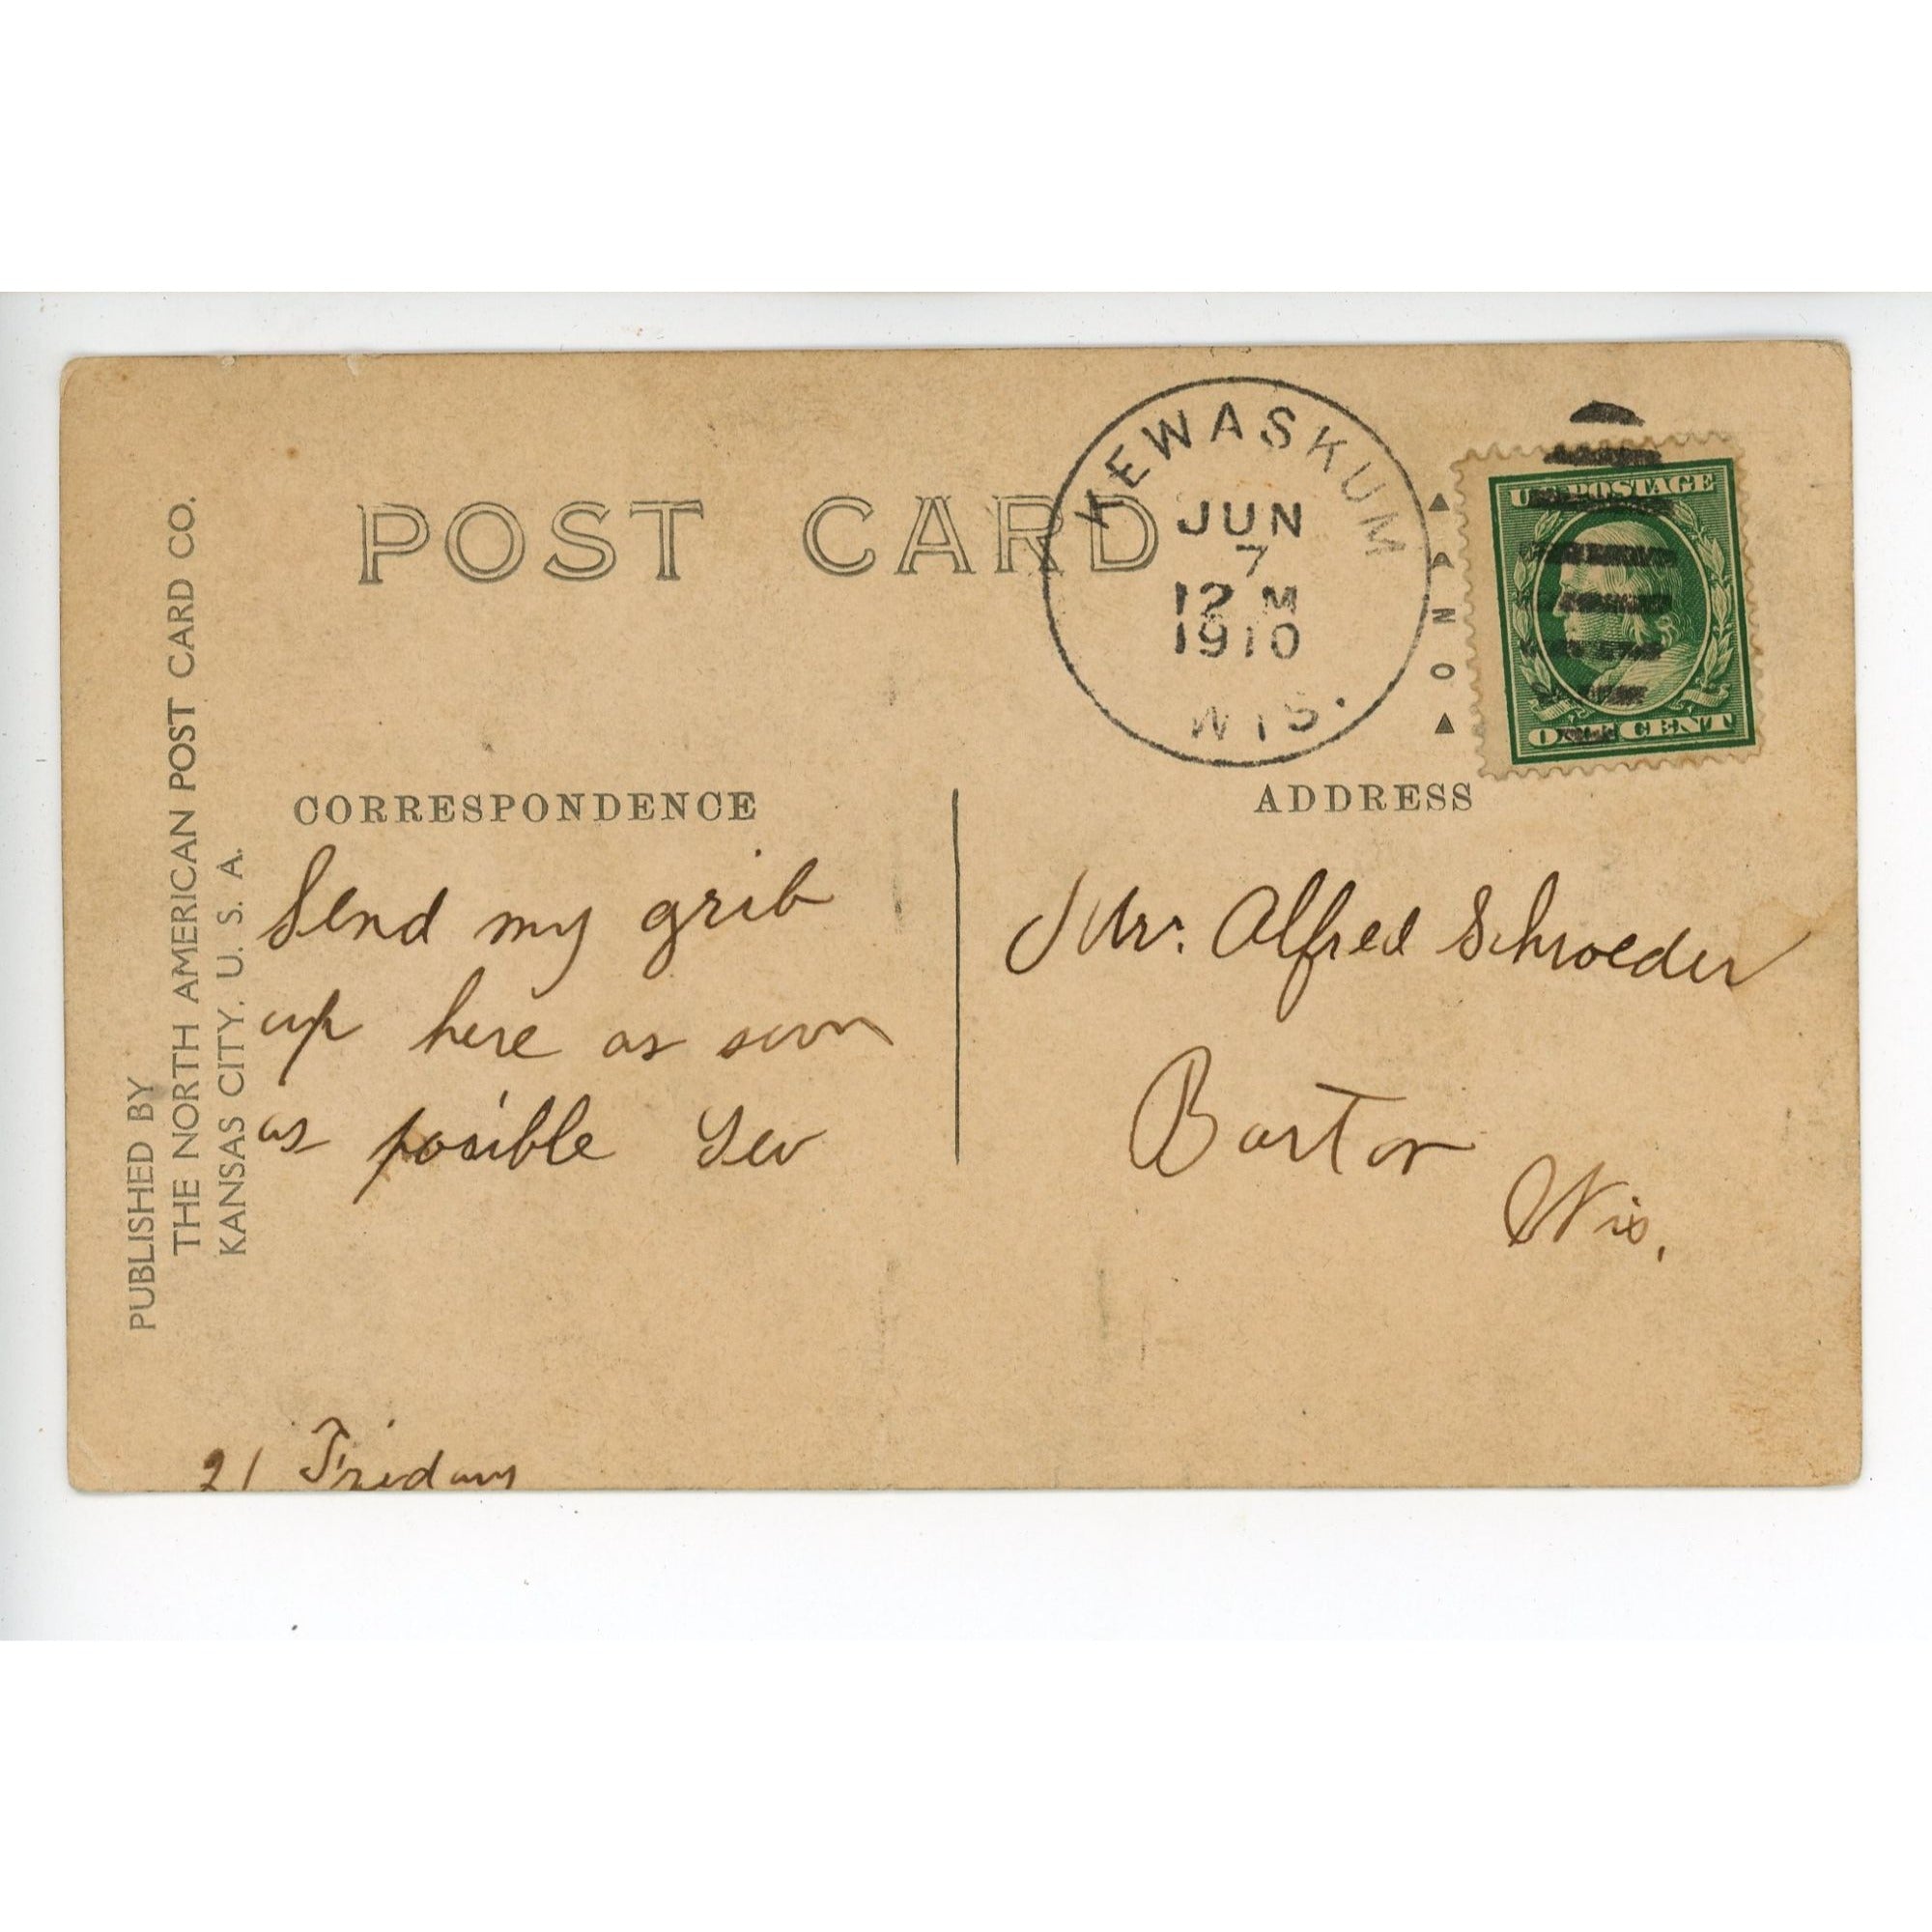 POST CARD
KEWASKUM
JUN
7
12 M
1910
WIS.
ANO
U.S. POSTAGE
ONE CENT
PUBLISHED BY
THE NORTH AMERICAN POST CARD CO.
KANSAS CITY, U. S. A.
CORRESPONDENCE
Send my grib
up here as soon
as posible
21 Friday
ADDRESS
Mr. Alfred Schroeder
Barton
Wis.